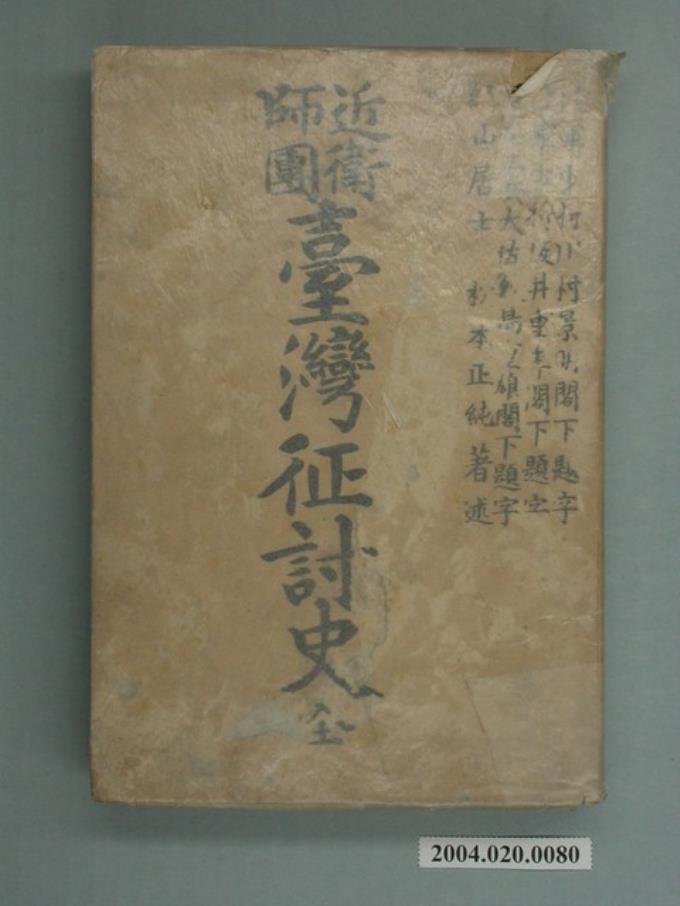 近衛
師團
臺灣征討史 全
川村景明閣下題字
阪井重季閣下題字
閣下題字
山居士 杉本正純著述
2004.020.0080